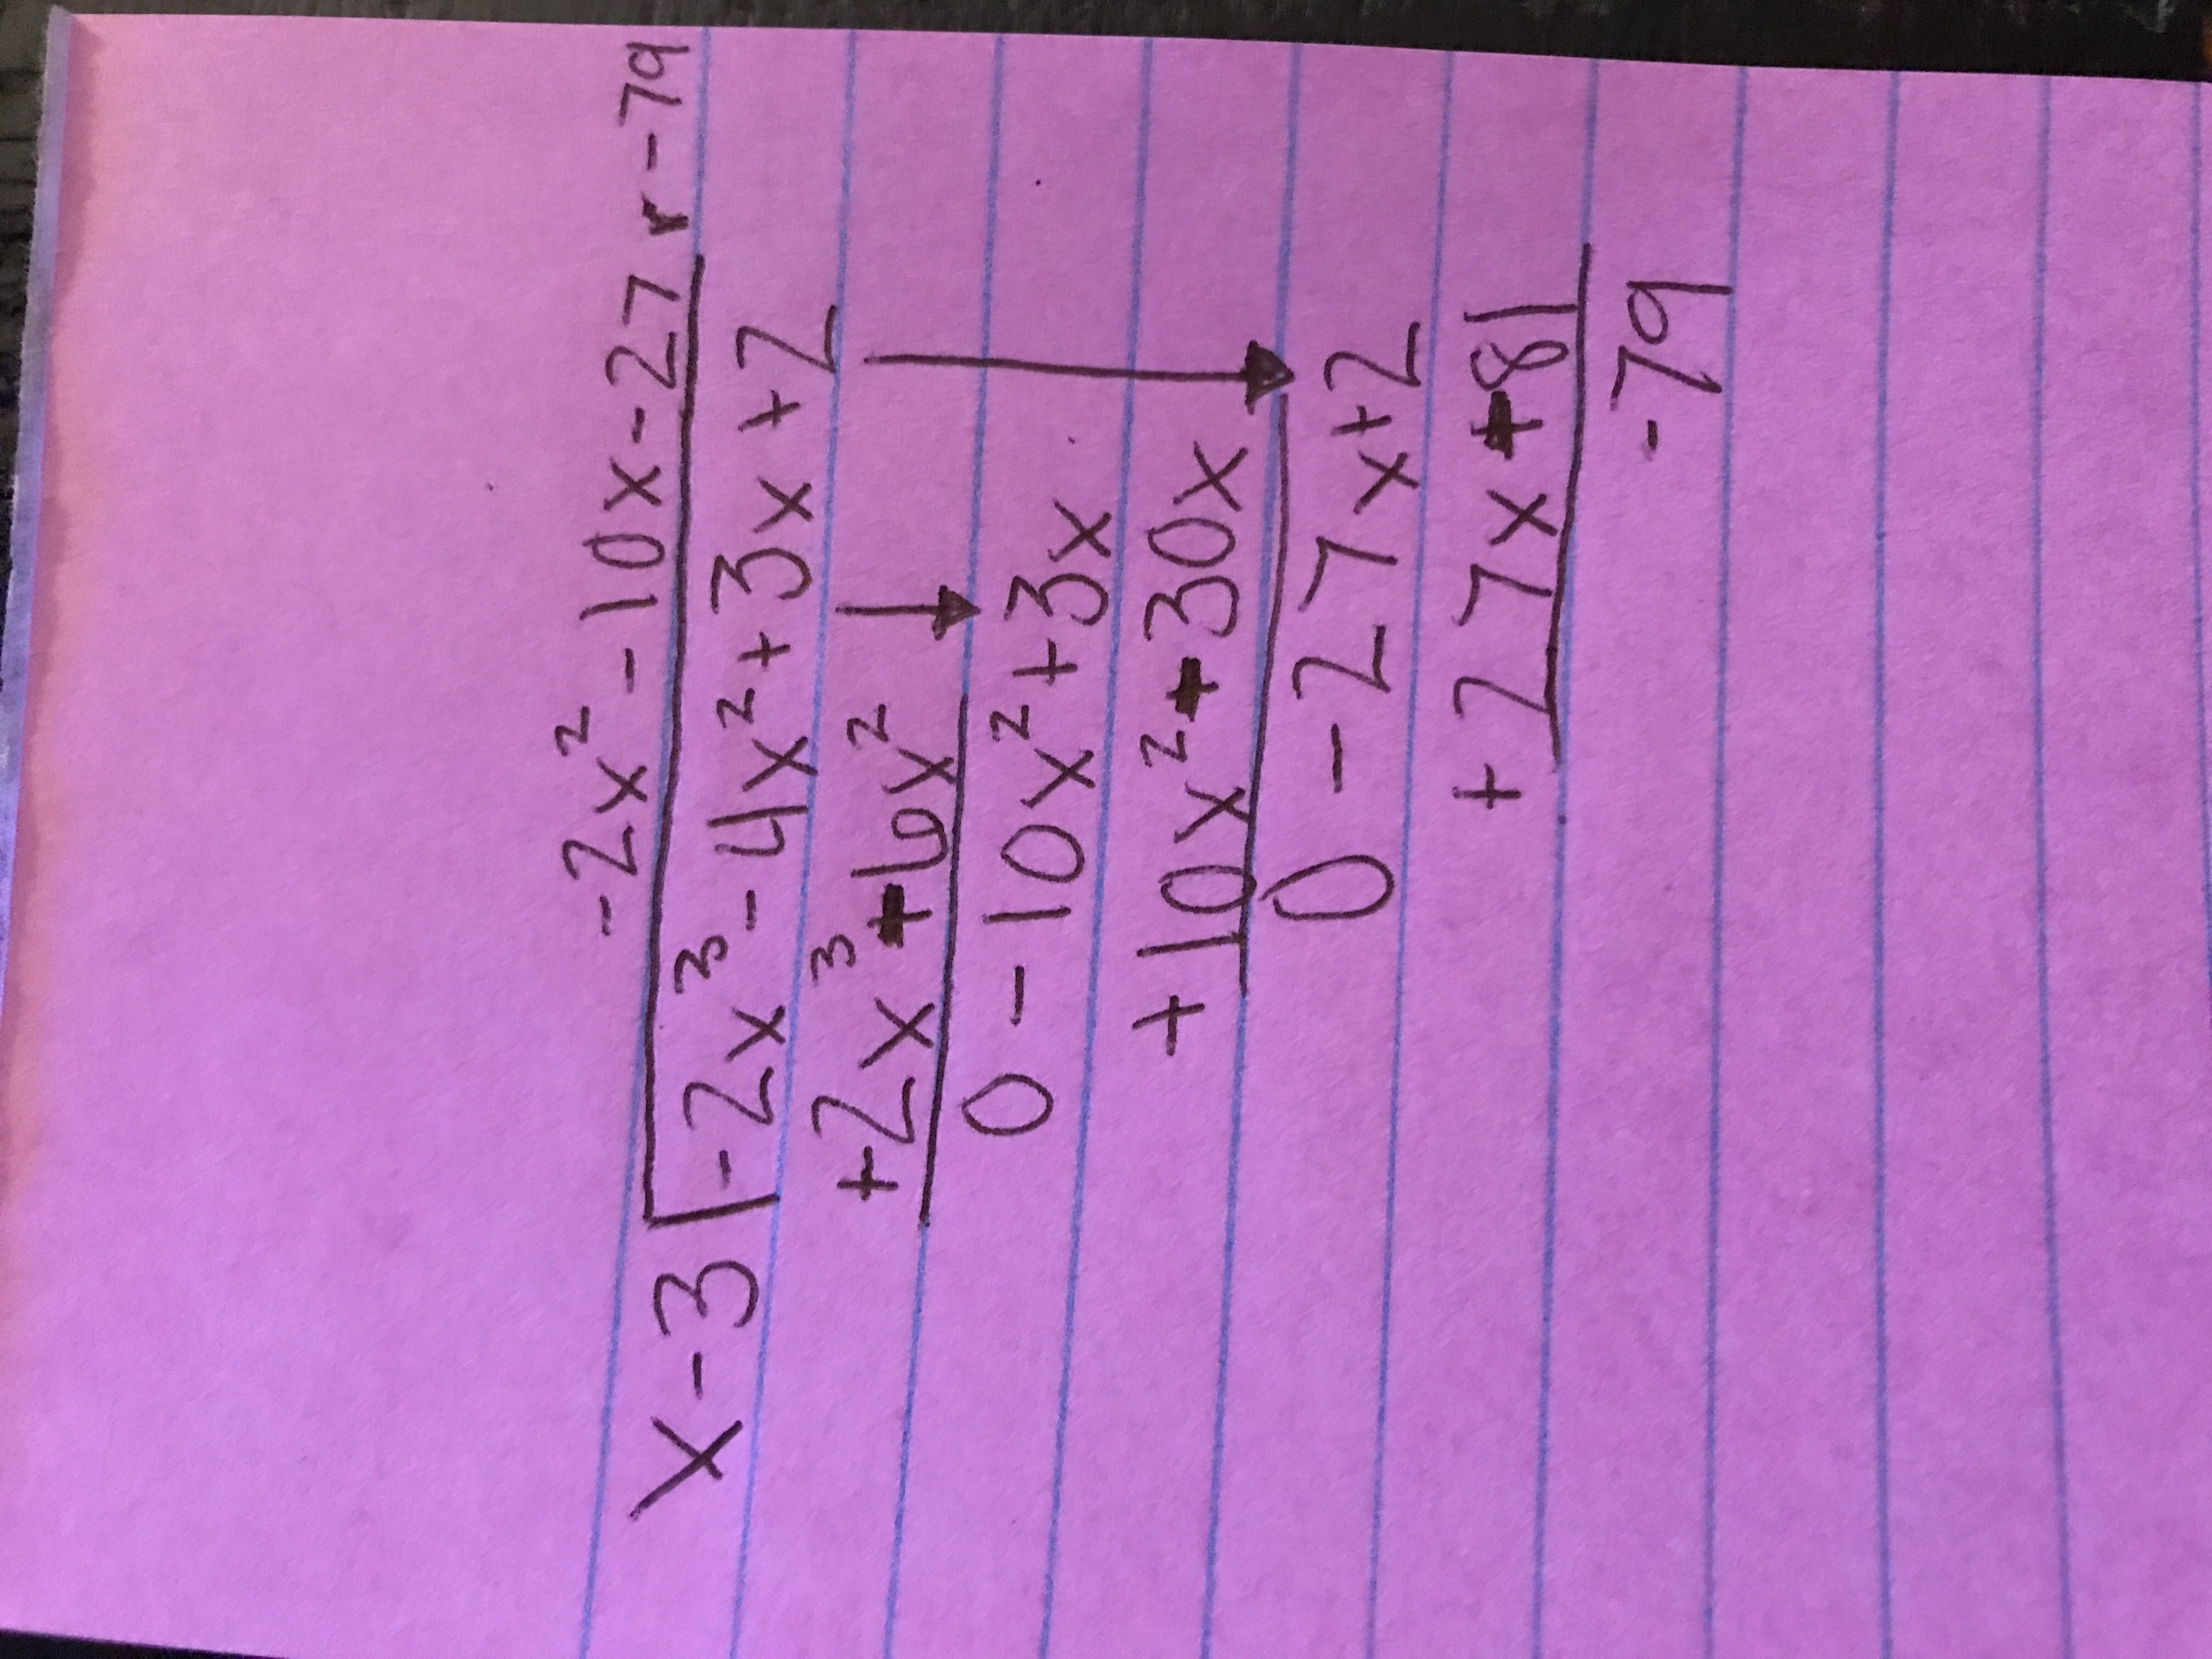 -2x² -10x-27 r -79
x-3 -2x³-4x²+3x+2
+2x³+6x²
0 -10x²+3x
+10x²+30x
0 -27x+2
+27x+81
-79